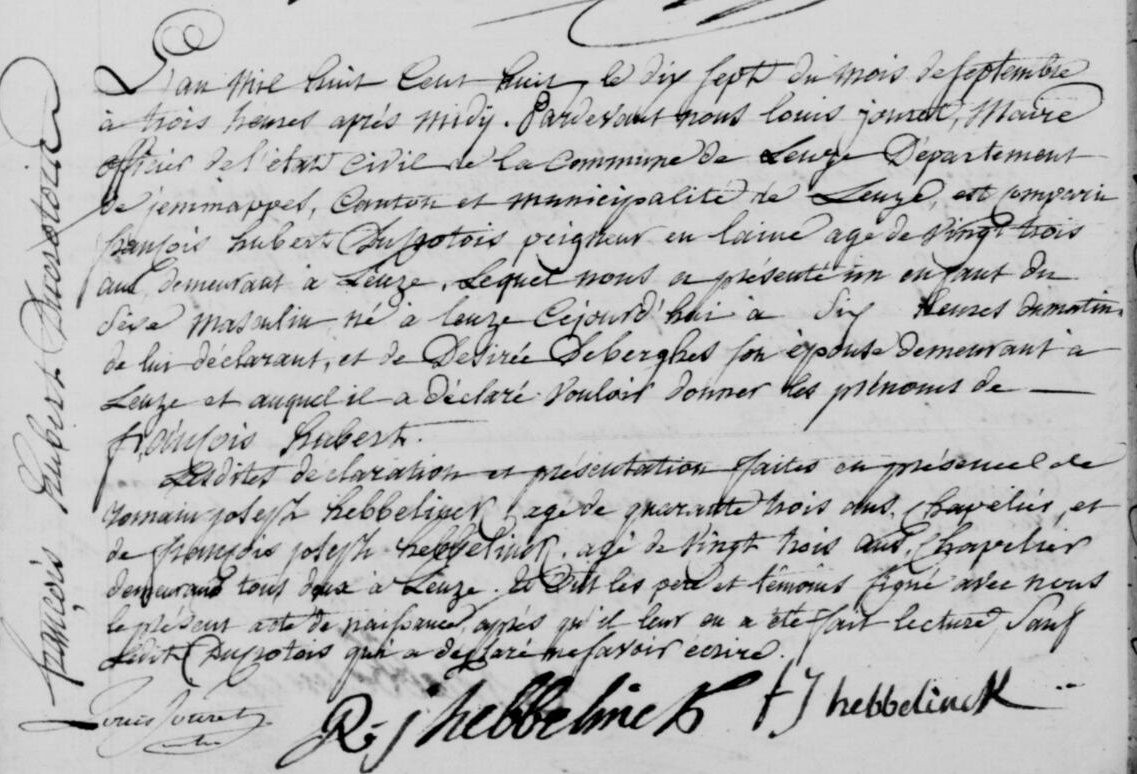 françois hubert Duspotois
L'an mil huit Cent huit, le dix sept du mois de septembre
à trois heures après midy. Pardevant nous louis jouret, Maire
officier de l'état civil de la commune de Leuze Département
de jemmappes, Canton et municipalité de Leuze, est comparu
françois hubert Duspotois peigneur en laine agé de vingt trois
ans, demeurant à Leuze, Lequel nous a présenté un enfant du
sexe masculin né à leuze Cejourd'hui à six heures du matin,
de lui déclarant, et de Desirée Deberghes son épouse demeurant à
Leuze et auquel il a déclaré vouloir donner les prénoms de —
françois hubert.
Lesdites declaration et présentation faites en présence de
romain joseph hebbelinck, agé de quarante trois ans, Chapelier, et
de françois joseph hebbelinck, agé de vingt trois ans, Chapelier
demeurans tous deux à Leuze. Et ont les père et témoins signé avec nous
le présent acte de naissance, après qu'il leur en a été fait lecture, sauf
ledit Duspotois qui a declaré ne savoir écrire.
Louis Jouret R. j hebbelinck f J hebbelinck